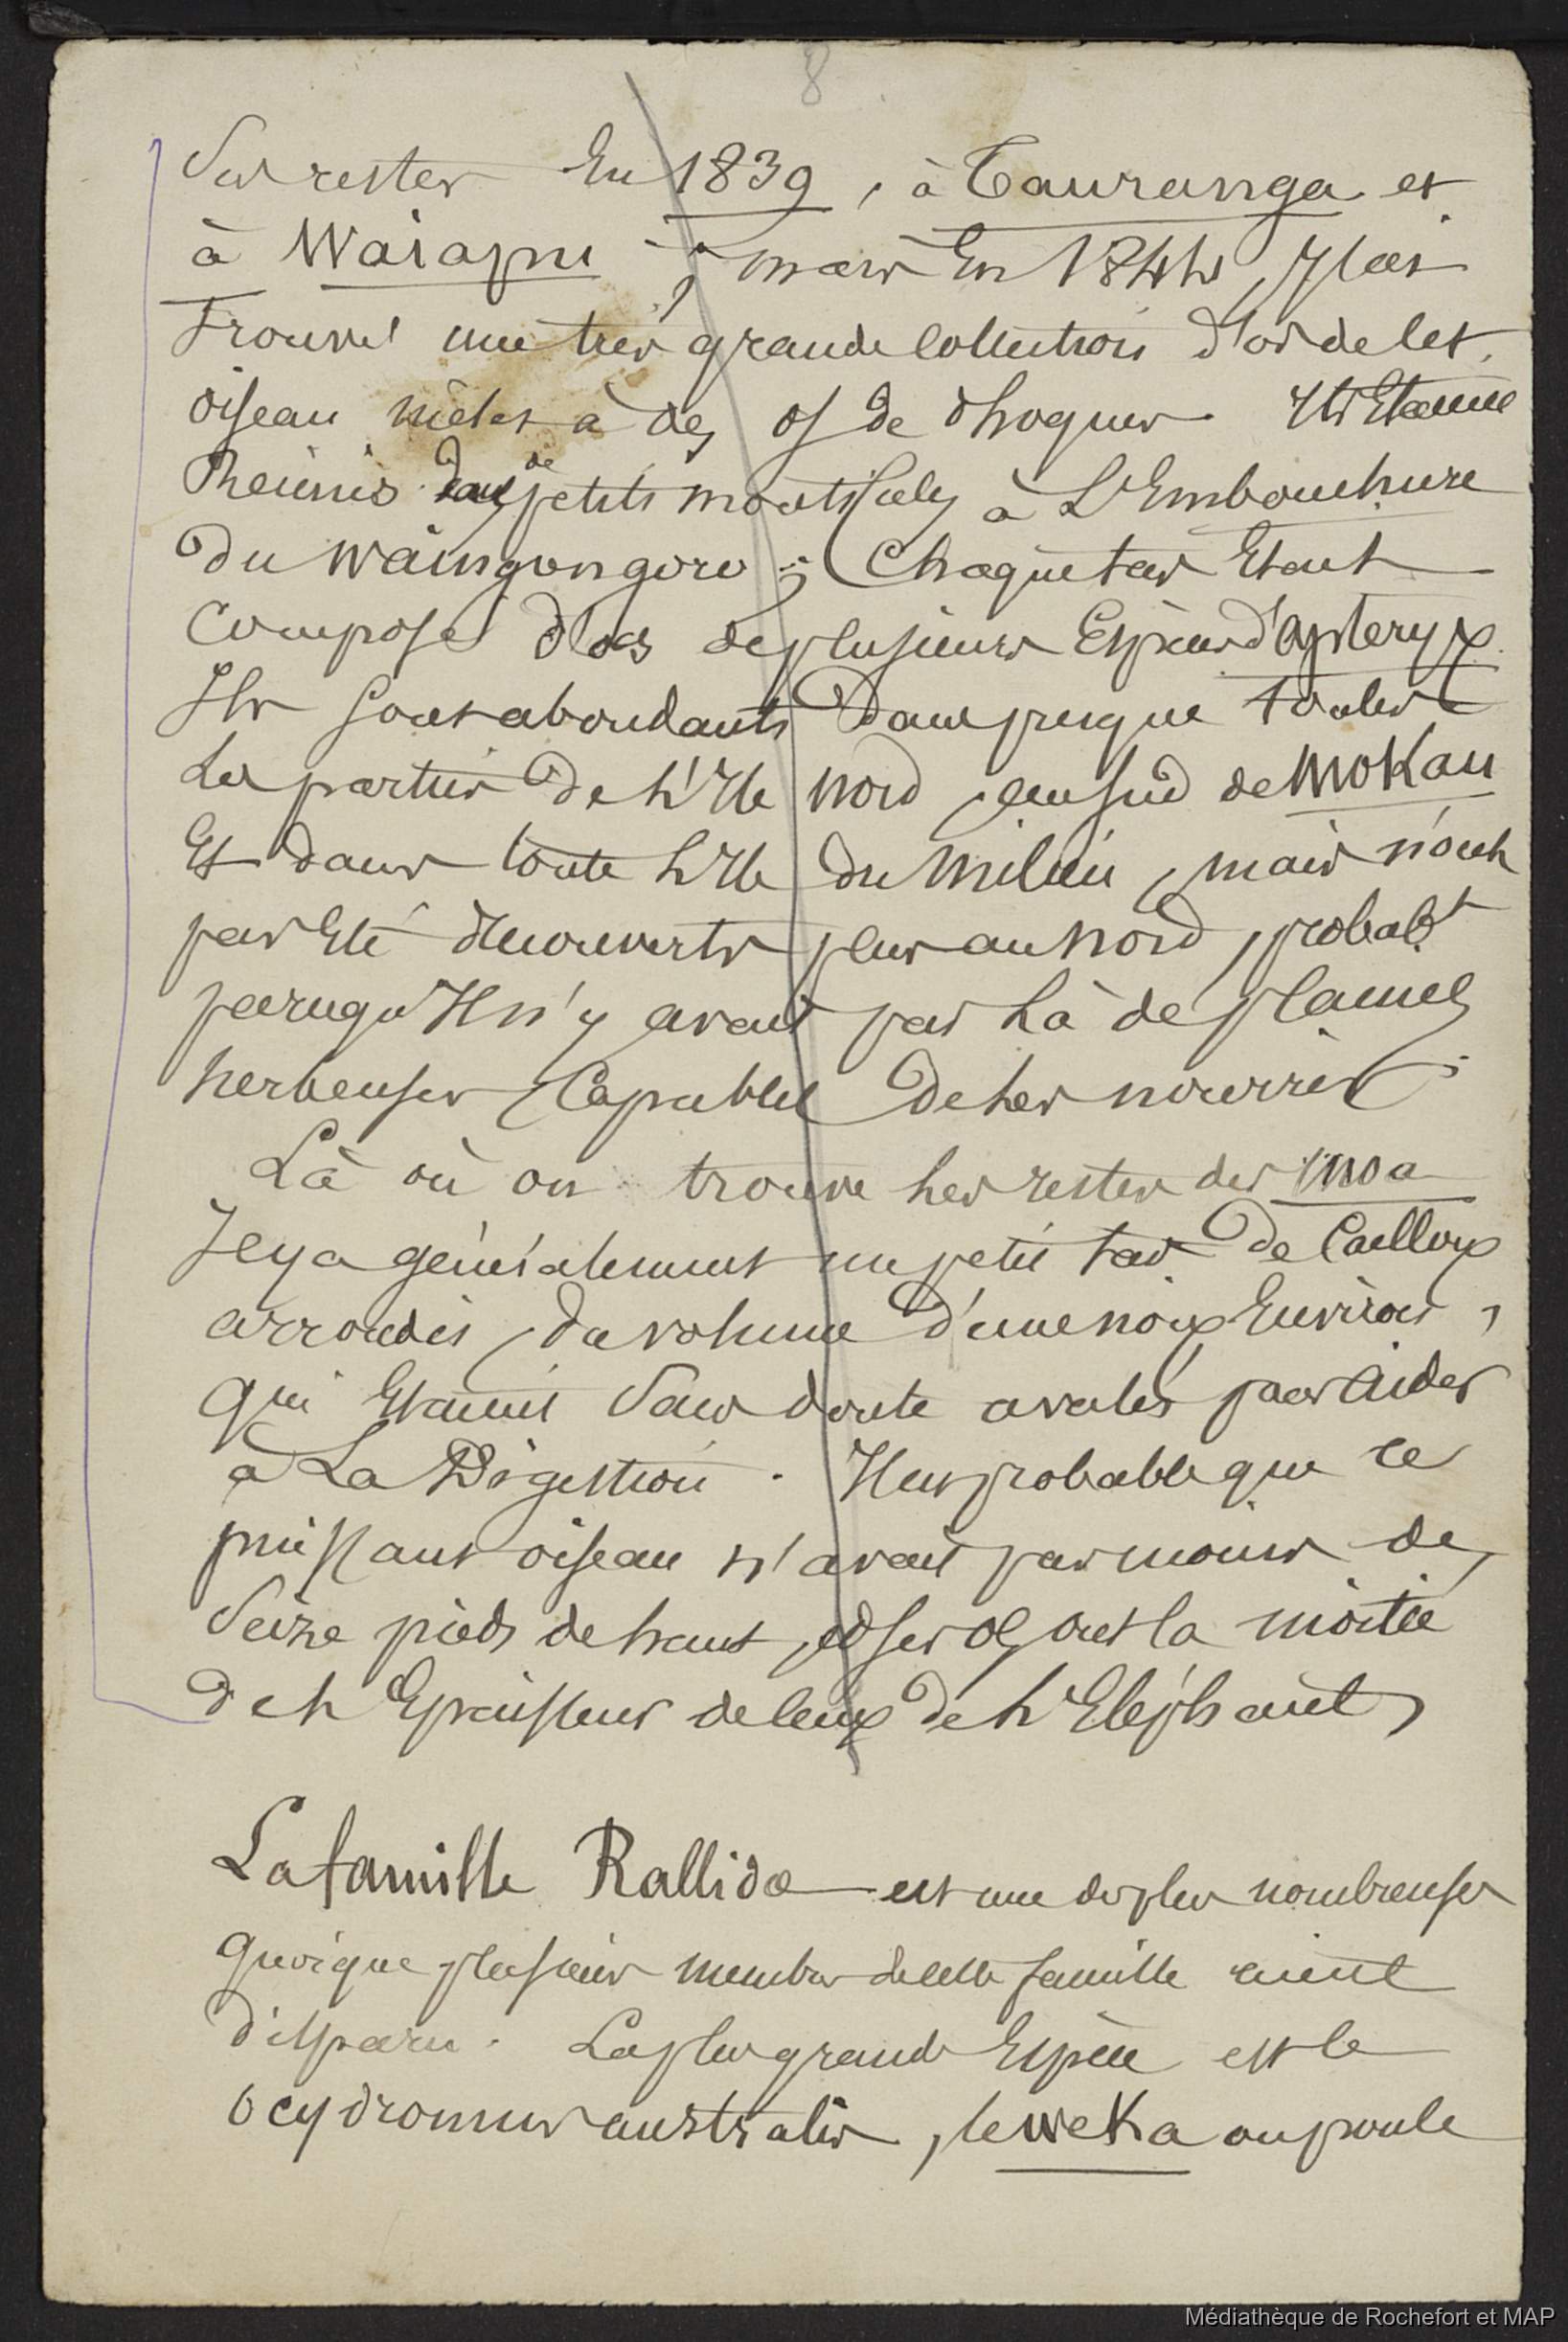 8
Ses restes En 1839, à Tauranga et
à Waiapu ; mais En 1844, Il ai
trouvé une très grande Collection d'os de cet
oiseau mêlés à des os de Phoques. Ils Etaient
Réunis dans de petits monticules à L'Embouchure
du Waingongoro ; Chaque tas Etant
Composé d'os de plusieurs Espèces d'apteryx
Ils sont abondants dans presque toutes
Les parties De L'Ile Nord, au sud de Mokau
Et dans toute L'Ile du Milieu, mais n'ont
pas Eté découverts plus au Nord, probabt
parcequ'Il n'y avait pas Là de plaines
herbeuses Capables De les nourrir.
Là où on trouve les restes des moa
Il y a généralement un petit tas De Cailloux
arrondis, du volume d'une noix Environ,
qui Etaient Sans doute avalés pour aider
à La Digestion. Il est probable que ce
puissant oiseau n'avait pas moins de
Seize pieds de haut, et ses os ont la moitié
de L'Epaisseur de ceux de L'Eléphant,
La famille Rallidæ est une des plus nombreuses
quoique plusieurs membres de cette famille aient
disparu. La plus grande Espèce est le
Ocydromus australis, le weka ou poule
Médiathèque de Rochefort et MAP